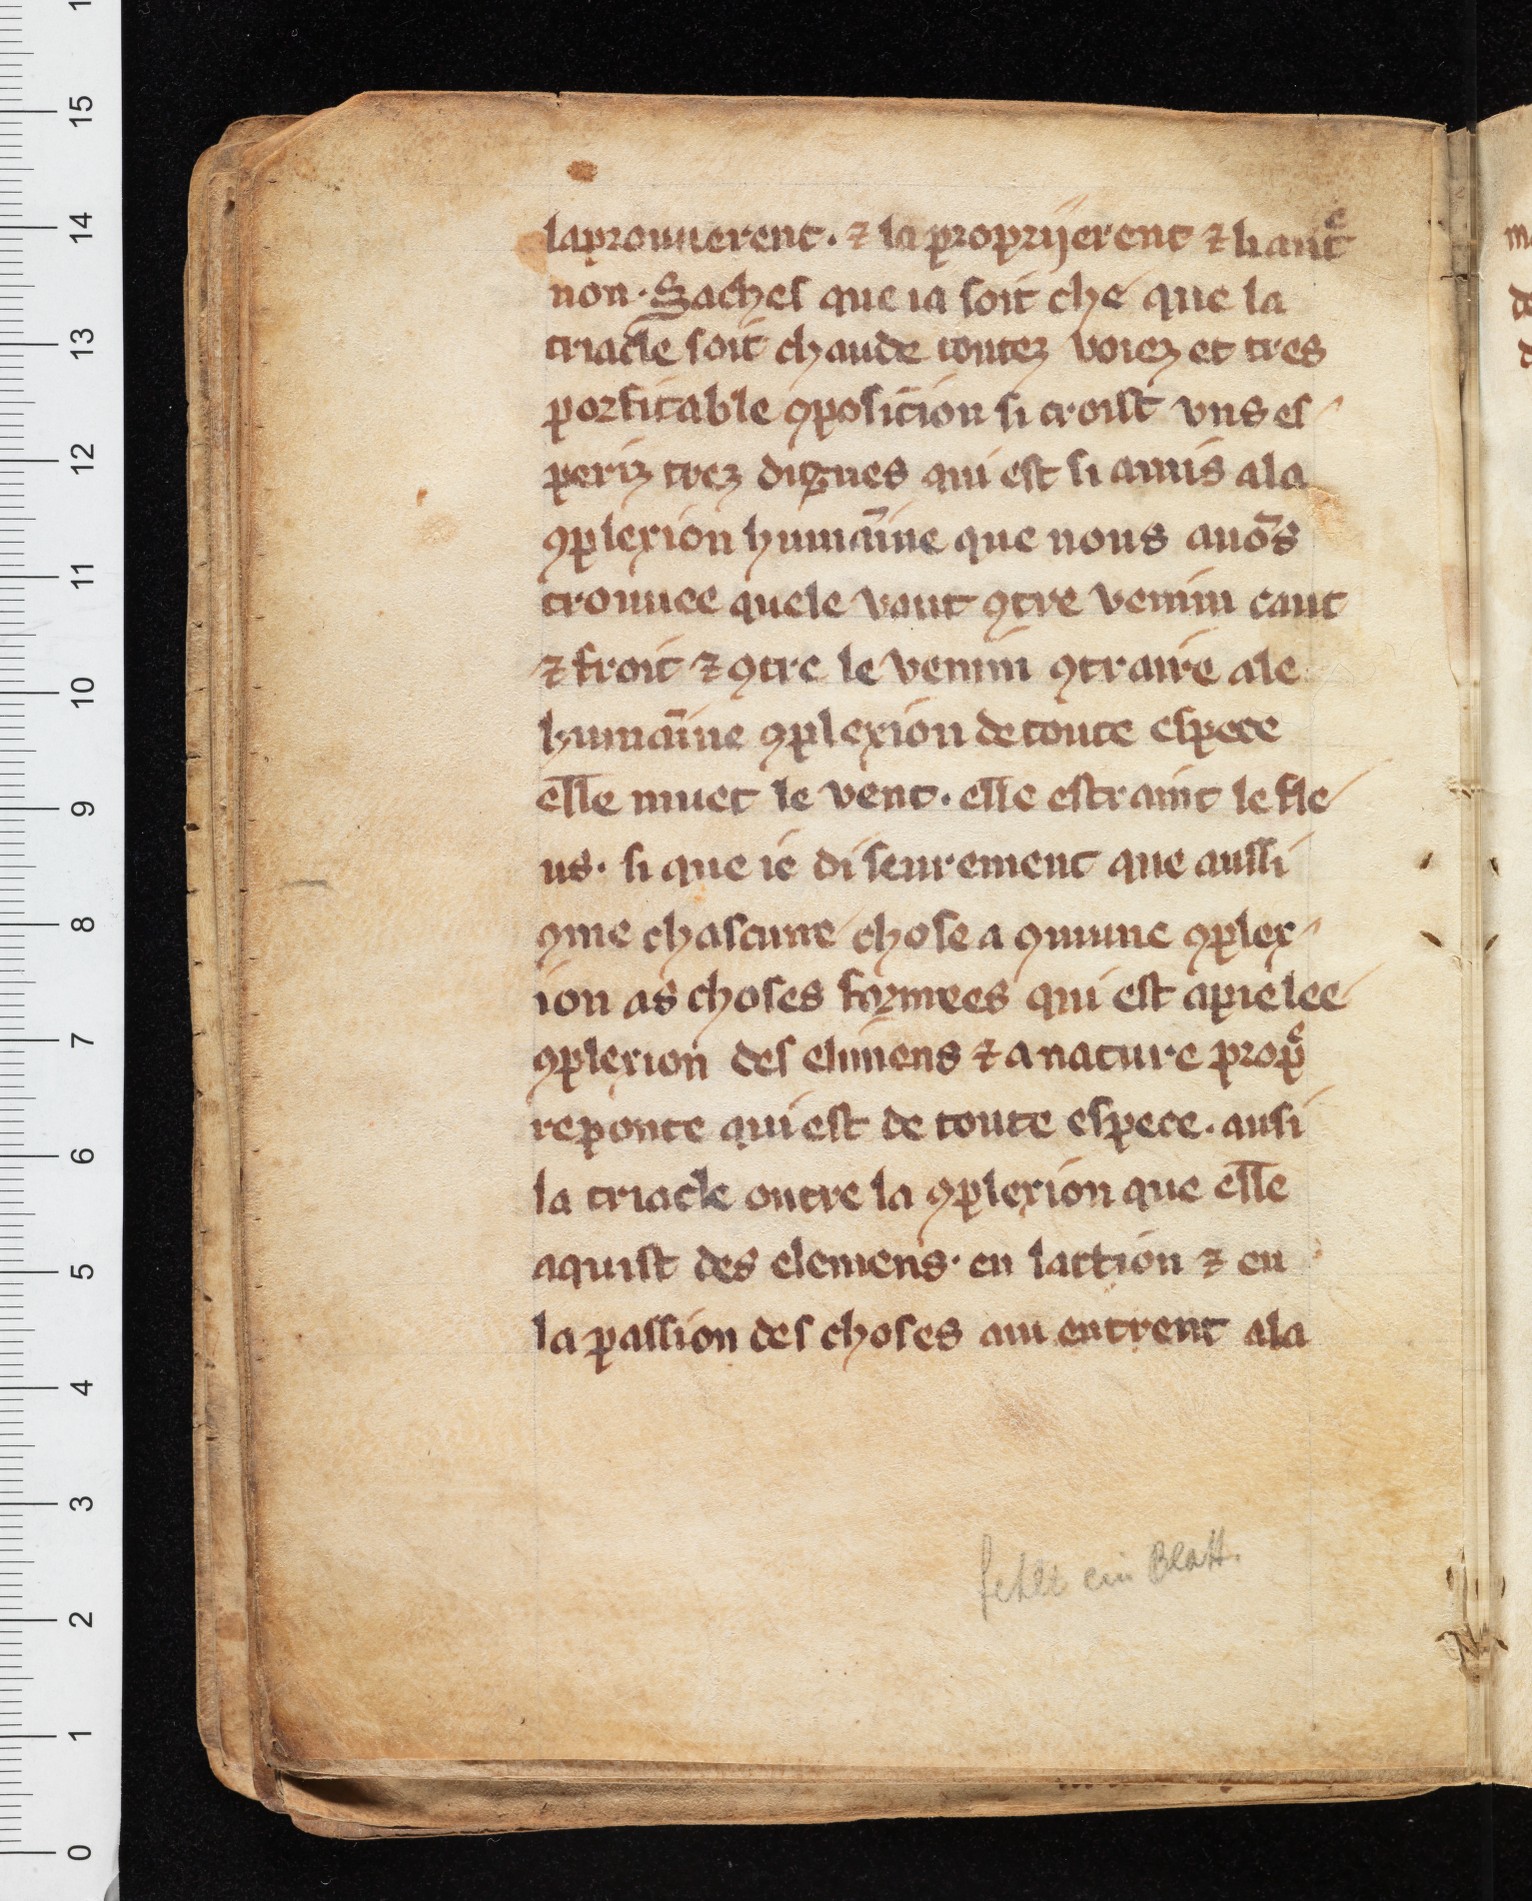 laprouuerent. ⁊ la proprijerent ⁊ li autͤ
non. Saches que ia soit che que la
triacle soit chaude toutez voiez et tres
porfitable ꝯposicion si croist vns es
periz trez dignes qui est si amis ala
ꝯplexion humaīne que nous auōs
trouuee quele vaut ꝯtre venim caut
⁊ froit ⁊ ꝯtre le venim ꝯtraire ale
humaīne ꝯplexion de toute espece
elle muet le vent. elle estraint le fle
us. si que ie di seurement que aussi
ꝯme chascune chose a ꝯmune ꝯplex
ion as choses formees qui est apielee
ꝯplexion des elimens ⁊ a nature propͤ
reponte qui est de toute espece. ausi
la triacle outre la ꝯplexion que elle
aquist des elemens. en laction ⁊ en
la passion des choses qui entrent ala
fehlt ein Blatt.
15
14
13
12
11
10
9
8
7
6
5
4
3
2
1
0